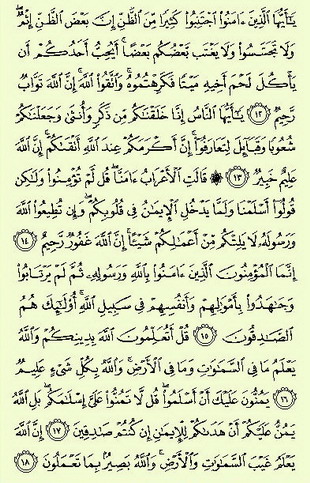 يَـٰٓأَيُّهَا ٱلَّذِينَ ءَامَنُوا۟ ٱجْتَنِبُوا۟ كَثِيرًا مِّنَ ٱلظَّنِّ إِنَّ بَعْضَ ٱلظَّنِّ إِثْمٌ ۖ
وَلَا تَجَسَّسُوا۟ وَلَا يَغْتَب بَّعْضُكُم بَعْضًا ۚ أَيُحِبُّ أَحَدُكُمْ أَن
يَأْكُلَ لَحْمَ أَخِيهِ مَيْتًا فَكَرِهْتُمُوهُ ۚ وَٱتَّقُوا۟ ٱللَّهَ ۚ إِنَّ ٱللَّهَ تَوَّابٌ
رَّحِيمٌ ۝١٢ يَـٰٓأَيُّهَا ٱلنَّاسُ إِنَّا خَلَقْنَـٰكُم مِّن ذَكَرٍ وَأُنثَىٰ وَجَعَلْنَـٰكُمْ
شُعُوبًا وَقَبَآئِلَ لِتَعَارَفُوٓا۟ ۚ إِنَّ أَكْرَمَكُمْ عِندَ ٱللَّهِ أَتْقَىٰكُمْ ۚ إِنَّ ٱللَّهَ
عَلِيمٌ خَبِيرٌ ۝١٣ ۞ قَالَتِ ٱلْأَعْرَابُ ءَامَنَّا ۖ قُل لَّمْ تُؤْمِنُوا۟ وَلَـٰكِن
قُولُوٓا۟ أَسْلَمْنَا وَلَمَّا يَدْخُلِ ٱلْإِيمَـٰنُ فِى قُلُوبِكُمْ ۖ وَإِن تُطِيعُوا۟ ٱللَّهَ
وَرَسُولَهُۥ لَا يَلِتْكُم مِّنْ أَعْمَـٰلِكُمْ شَيْـًٔا ۚ إِنَّ ٱللَّهَ غَفُورٌ رَّحِيمٌ ۝١٤
إِنَّمَا ٱلْمُؤْمِنُونَ ٱلَّذِينَ ءَامَنُوا۟ بِٱللَّهِ وَرَسُولِهِۦ ثُمَّ لَمْ يَرْتَابُوا۟
وَجَـٰهَدُوا۟ بِأَمْوَٰلِهِمْ وَأَنفُسِهِمْ فِى سَبِيلِ ٱللَّهِ ۚ أُو۟لَـٰٓئِكَ هُمُ
ٱلصَّـٰدِقُونَ ۝١٥ قُلْ أَتُعَلِّمُونَ ٱللَّهَ بِدِينِكُمْ وَٱللَّهُ
يَعْلَمُ مَا فِى ٱلسَّمَـٰوَٰتِ وَمَا فِى ٱلْأَرْضِ ۚ وَٱللَّهُ بِكُلِّ شَىْءٍ عَلِيمٌ
۝١٦ يَمُنُّونَ عَلَيْكَ أَنْ أَسْلَمُوا۟ ۖ قُل لَّا تَمُنُّوا۟ عَلَىَّ إِسْلَـٰمَكُم ۖ بَلِ ٱللَّهُ
يَمُنُّ عَلَيْكُمْ أَنْ هَدَىٰكُمْ لِلْإِيمَـٰنِ إِن كُنتُمْ صَـٰدِقِينَ ۝١٧ إِنَّ ٱللَّهَ
يَعْلَمُ غَيْبَ ٱلسَّمَـٰوَٰتِ وَٱلْأَرْضِ ۚ وَٱللَّهُ بَصِيرٌۢ بِمَا تَعْمَلُونَ ۝١٨